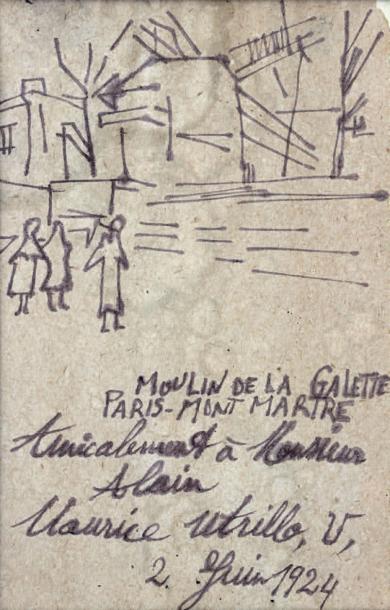 MOULIN DE LA GALETTE
PARIS-MONTMARTRE
Amicalement à Monsieur
Alain
Maurice Utrillo, V,
2 Juin 1924